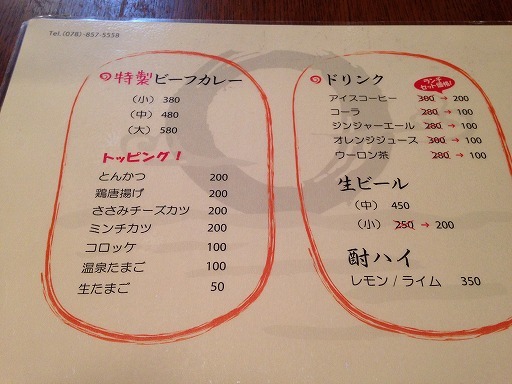 Tel.(078)-857-5558
特製ビーフカレー
（小）380
（中）480
（大）580
トッピング！
とんかつ 200
鶏唐揚げ 200
ささみチーズカツ 200
ミンチカツ 200
コロッケ 100
温泉たまご 100
生たまご 50
ドリンク
ランチ
セット価格!
アイスコーヒー 380 → 200
コーラ 280 → 100
ジンジャーエール 280 → 100
オレンジジュース 380 → 100
ウーロン茶 280 → 100
生ビール
（中）450
（小）250 → 200
酎ハイ
レモン / ライム 350